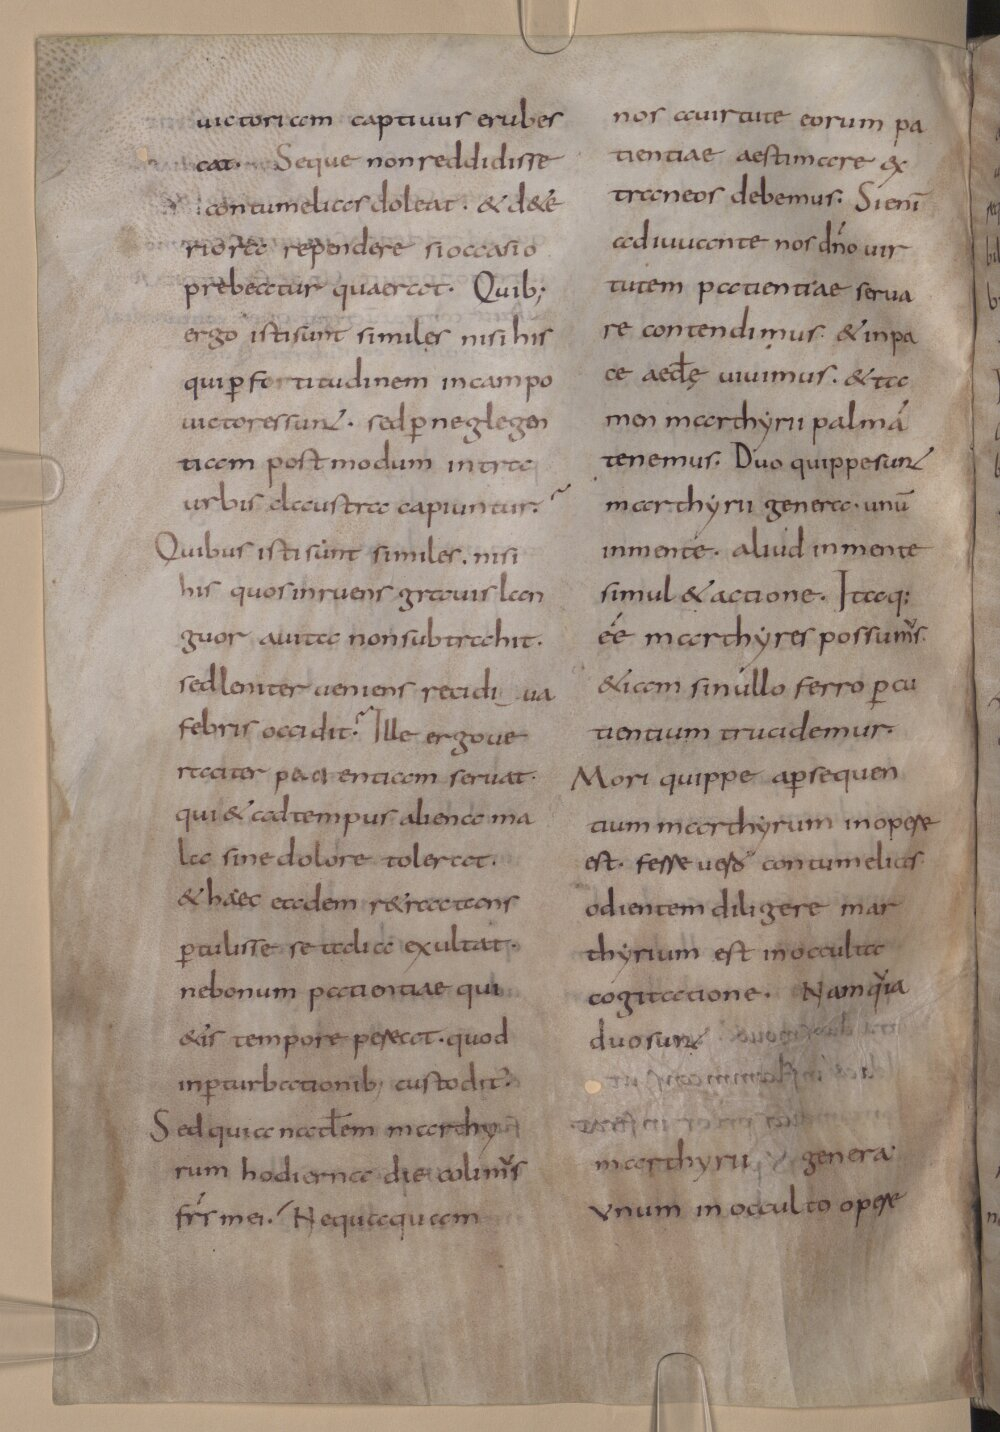 uictoriam captiuus erubes
cat. Seque non reddidisse
contumelias doleat. & d&e
riora rependere si occasio
prebeatur quaerat. Quib;
ergo isti sunt similes nisi his
qui ꝑ fortitudinem in campo
uictores sun&. sed ꝑ neglegen
tiam post modum intra
urbis claustra capiuntur.
Quibus isti sunt similes. nisi
his quos inruens grauis lan
guor a uita non subtrahit.
sed leniter ueniens recidiua
febris occidit. Ille ergo ue
raciter pacientiam seruat.
qui & ad tempus aliena ma
la sine dolore tolerat.
& haec eadem r&ractans
ꝑtulisse se talia exultat.
ne bonum patientiae qui
&is tempore pereat. quod
in ꝑturbationib; custodit.
Sed quia natałem marthy
rum hodierna die colim᷒s
frs̄ mei. Nequaquam
nos a uirtute eorum pa
tientiae aestimare ex
traneos debemus. Si enī
adiuuante nos dn̄o uir
tutem patientiae serua
re contendimus. & in pa
ce aeclę uiuimus. & ta
men marthyrii palmā
tenemus. Duo quippe sun&
marthyrii genera. unū
in mente. aliud in mente
simul & actione. Itaq;
eē marthyres possum᷒s.
&iam si nullo ferro ꝑcu
tientium trucidemur.
Mori quippe a ꝑsequen
tium marthyrum in opere
est. ferre uero contumelias
odientem diligere mar
thyrium est in occulta
cogitatione. Nam quia
duo sun&
marthyrii genera.
unum in occulto opere